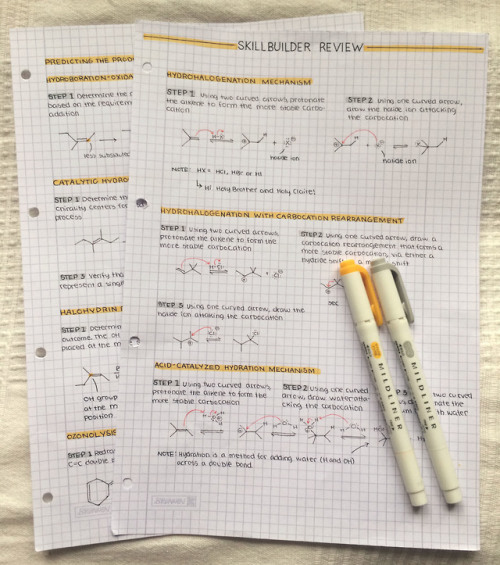 SKILLBUILDER REVIEW
HYDROHALOGENATION MECHANISM
STEP 1 Using two curved arrows, protonate
the alkene to form the more stable carbo-
cation
STEP 2 Using one curved arrow,
draw the halide ion attacking
the carbocation
halide ion
halide ion
NOTE: HX = HCl, HBr or HI
HYDROHALOGENATION WITH CARBOCATION REARRANGEMENT
STEP 1 Using two curved arrows,
protonate the alkene to form the
more stable carbocation
STEP 2 Using one curved arrow, draw a
carbocation rearrangement that forms a
more stable carbocation, via either a
hydride shift
shift
sec
STEP 3 Using one curved arrow, draw the
halide ion attacking the carbocation
ACID-CATALYZED HYDRATION MECHANISM
STEP 1 Using two curved arrows,
protonate the alkene to form the
more stable carbocation
STEP 2 Using one curved
arrow, draw water atta-
cking the carbocation
two curved
NOTE: Hydration is a method for adding water (H and OH)
across a double bond.
PREDICTING THE PROD
HYDROBORATION-OXIDA
STEP 1 Determine the r
based on the requirem
addition
less substitu
CATALYTIC HYDRO
STEP 1 Determine th
chirality centers for
process
STEP 3 Verify tha
represent a single
HALOHYDRIN
STEP 1 Determin
outcome. The OH
placed at the m
OH group
at the m
position
OZONOLYSIS
STEP 1 Redra
C=C double
MILDLINER
MILDLINER